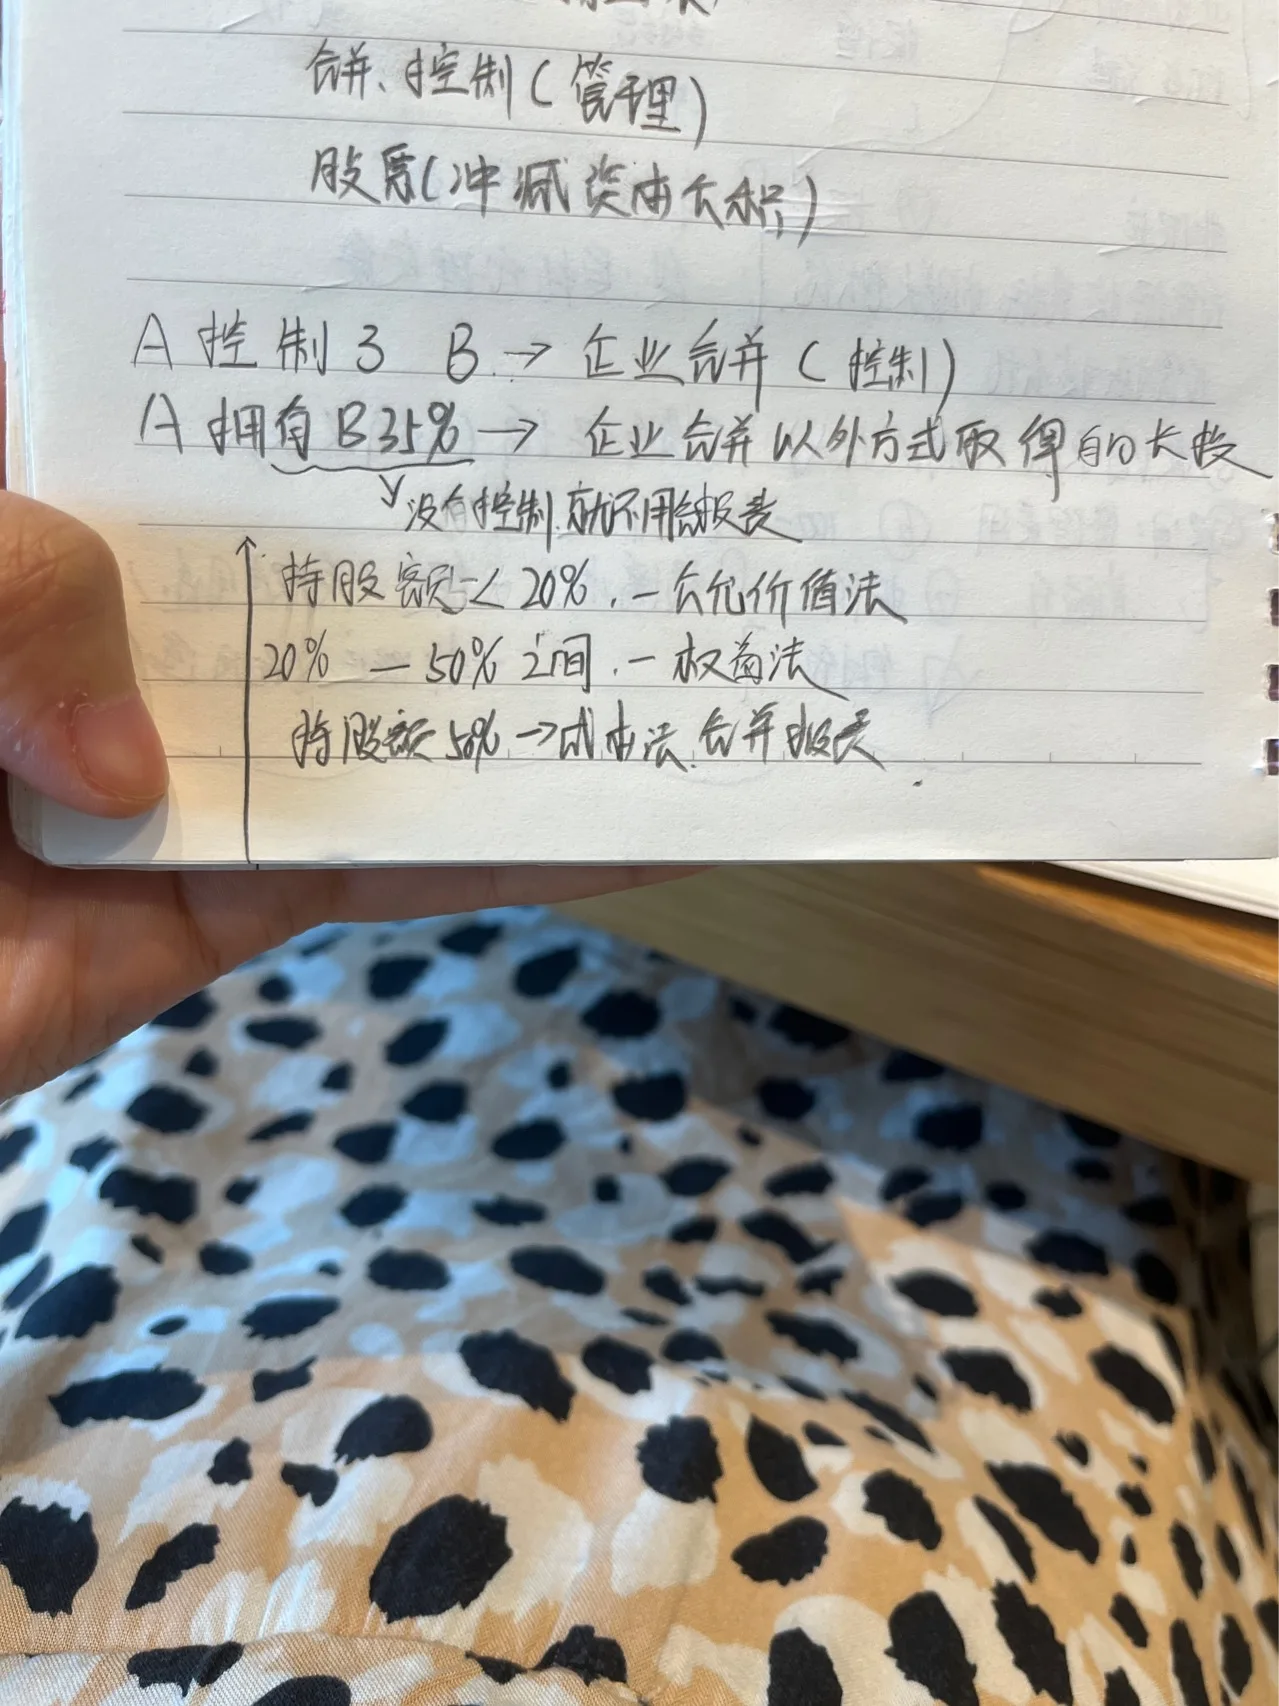 合并、控制（管理）
股票（冲减资本公积）
A控制3 B → 企业合并（控制）
A拥有B35% → 企业合并以外方式取得的长投
没有控制，就不用合报表
持股额＜20%．—公允价值法
20% — 50%之间．—权益法
持股额50% →成本法．合并报表